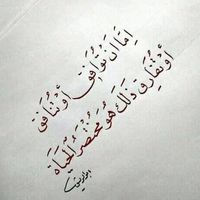 إِمَّا أَنْ نُوَافِقَ أَوْ نُنَافِقَ
أَوْ نُفَارِقَ ذَلِكَ هُوَ مُخْتَصَرُ الْحَيَاةِ